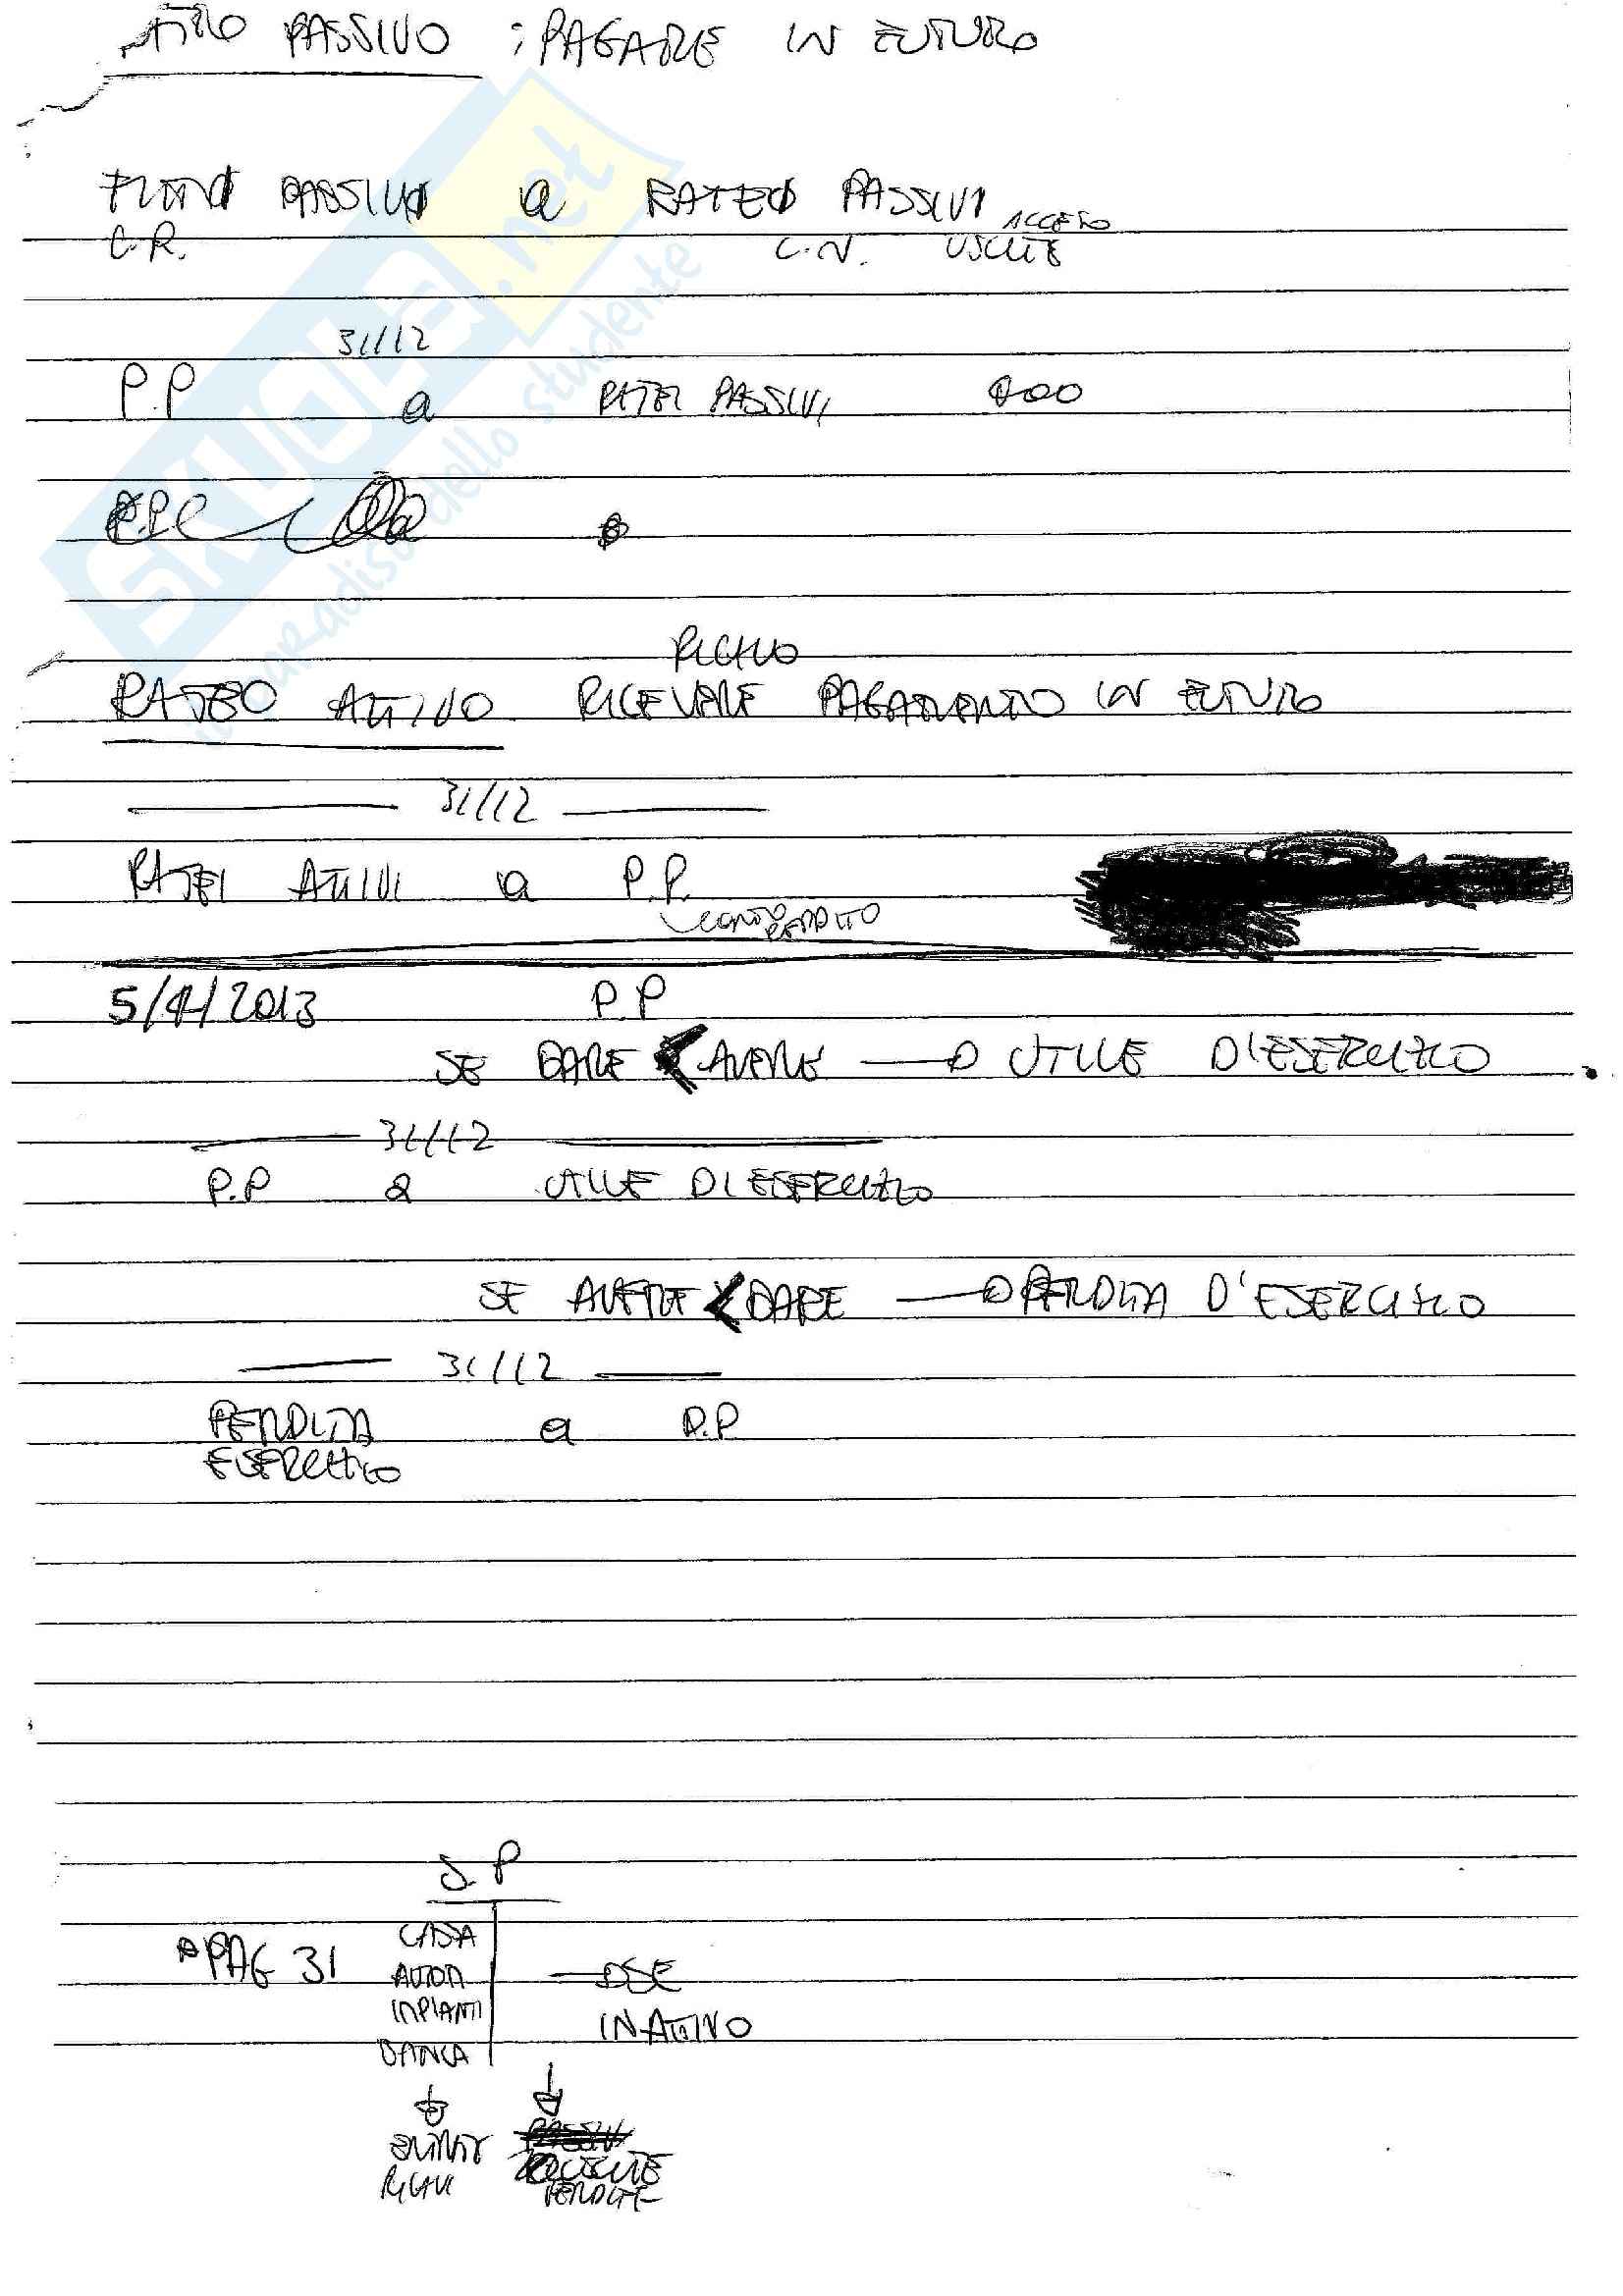 PASSIVO : PAGARE IN FUTURO
FITTO PASSIVO a RATEO PASSIVI ACCESO
C.R. C.N. USCITE
31/12
P.P a RATEI PASSIVI
RICAVO
RATEO ATTIVO RICEVERE PAGAMENTO IN FUTURO
31/12
RATEI ATTIVI a P.P.
CONTO
5/4/2013 P.P
SE DARE < AVERE → UTILE D'ESERCIZIO
31/12
P.P a UTILE D'ESERCIZIO
SE AVERE < DARE → PERDITA D'ESERCIZIO
31/12
PERDITA a P.P
ESERCIZIO
S.P
CASA
PAG 31 AUTOM
IMPIANTI
IN ATTIVO
BANCA
RICAVI PERDITE
SKUOLA.net
il paradiso dello studente